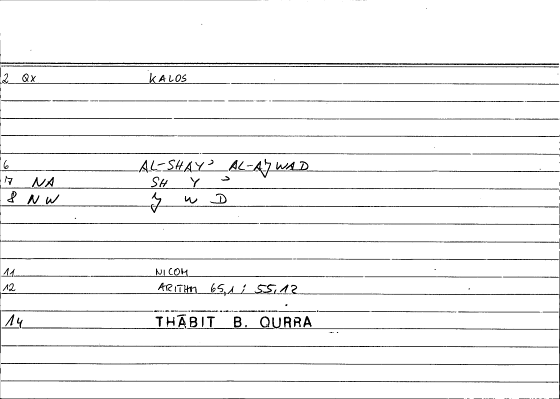 2 QX KALOS
6 AL-SHAYʾ AL-AJWAD
7 NA SH Y ʾ
8 NW J W D
11 NICOM
12 ARITHM 65,1 ; 55,12
14 THĀBIT B. QURRA